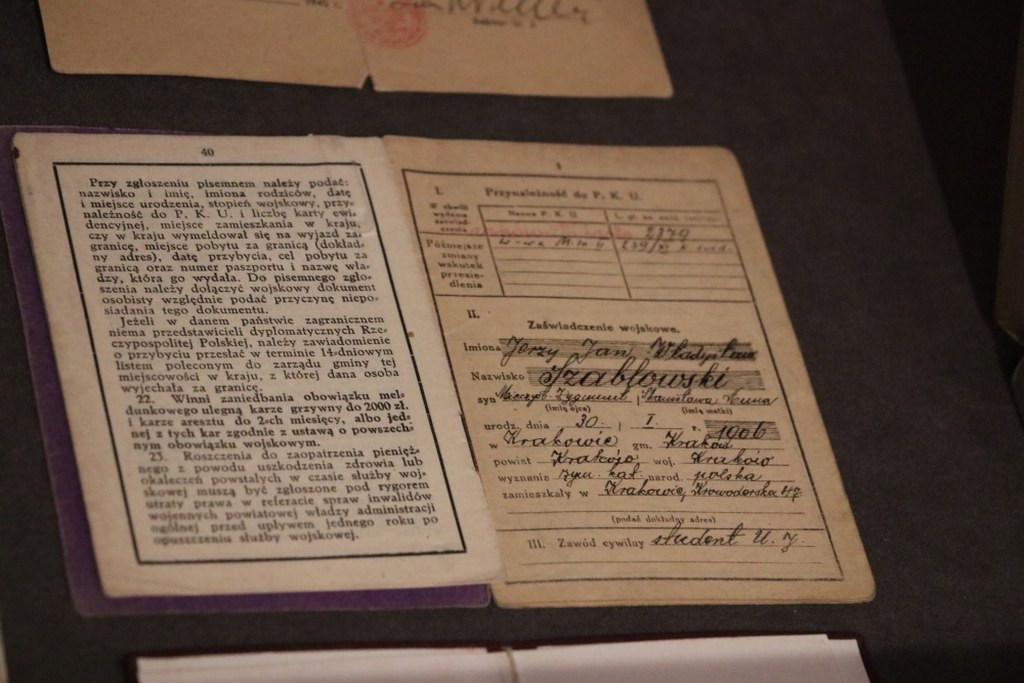 40
Przy zgłoszeniu pisemnem należy podać:
nazwisko i imię, imiona rodziców, datę
i miejsce urodzenia, stopień wojskowy, przy-
należność do P. K. U. i liczbę karty ewi-
dencyjnej, miejsce zamieszkania w kraju,
czy w kraju wymeldował się na wyjazd za-
granicę, miejsce pobytu za granicą (dokład-
ny adres), datę przybycia, cel pobytu za
granicą oraz numer paszportu i nazwę wła-
dzy, która go wydała. Do pisemnego zgło-
szenia należy dołączyć wojskowy dokument
osobisty względnie podać przyczynę niepo-
siadania tego dokumentu.
Jeżeli w danem państwie zagranicznem
niema przedstawicieli dyplomatycznych Rze-
czypospolitej Polskiej, należy zawiadomienie
o przybyciu przesłać w terminie 14-dniowym
listem poleconym do zarządu gminy tej
miejscowości w kraju, z której dana osoba
wyjechała za granicę.
22. Winni zaniedbania obowiązku mel-
dunkowego ulegną karze grzywny do 2000 zł.
i karze aresztu do 2-ch miesięcy, albo jed-
nej z tych kar zgodnie z ustawą o powszech-
nym obowiązku wojskowym.
23. Roszczenia do zaopatrzenia pienięż-
nego z powodu uszkodzenia zdrowia lub
okaleczeń powstałych w czasie służby woj-
skowej muszą być zgłoszone pod rygorem
utraty prawa w referacie spraw inwalidów
wojennych powiatowej władzy administracji
ogólnej przed upływem jednego roku po
opuszczeniu służby wojskowej.
I. Przynależność do P. K. U.
W chwili wydania
Nazwa P. K. U.
2879
Późniejsze
zmiany
wskutek
przesie-
dlenia
II. Zaświadczenie wojskowe.
Imiona Jerzy Jan Władysław
Nazwisko
syn Zygmunt Stanisława
(imię ojca) (imię matki)
urodz. dnia 30. I. r. 1906
w Krakowie gm. Kraków
powiat Kraków woj. Kraków
wyznanie rzym. kat. narod. polska
zamieszkały w Krakowie, Krowoderska 47
(podać dokładny adres)
III. Zawód cywilny student U. J.